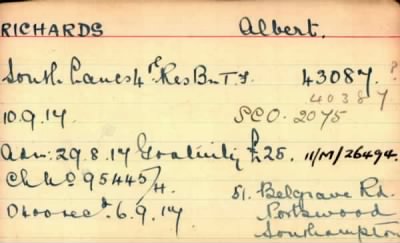 RICHARDS Albert.
South Lancs 4th Res Bn T.F. 43087. ?
40387
10.9.17. SCO. 2075
Adm: 29.8.17 Gratuity £25. 11/M/26494.
Ch No 95445/H. 51. Belgrave Rd.
D400 recd. 6.9.17 Portswood
Southampton